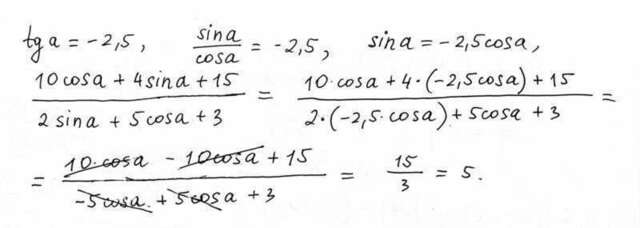 tg a = -2,5, sin a / cos a = -2,5, sin a = -2,5 cos a,
(10 cos a + 4 sin a + 15) / (2 sin a + 5 cos a + 3) = (10·cos a + 4·(-2,5 cos a) + 15) / (2·(-2,5·cos a) + 5 cos a + 3) =
= (10·cos a - 10 cos a + 15) / (-5 cos a + 5 cos a + 3) = 15/3 = 5.